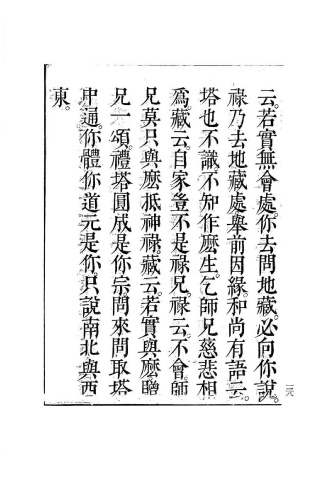 云。若實無會處。你去問地藏。必向你說。
祿乃去地藏處。舉前因緣。和尚有語云。
塔也不識。不知作麼生。乞師兄慈悲相
爲。藏云。自家豈不是祿兄。祿云。不會。師
兄莫只與麼抵神祿。藏云。若實與麼。贈
兄一頌。禮塔圓成是你宗。問來問取塔
中通。你體你道元是你。只說南北與西
東。